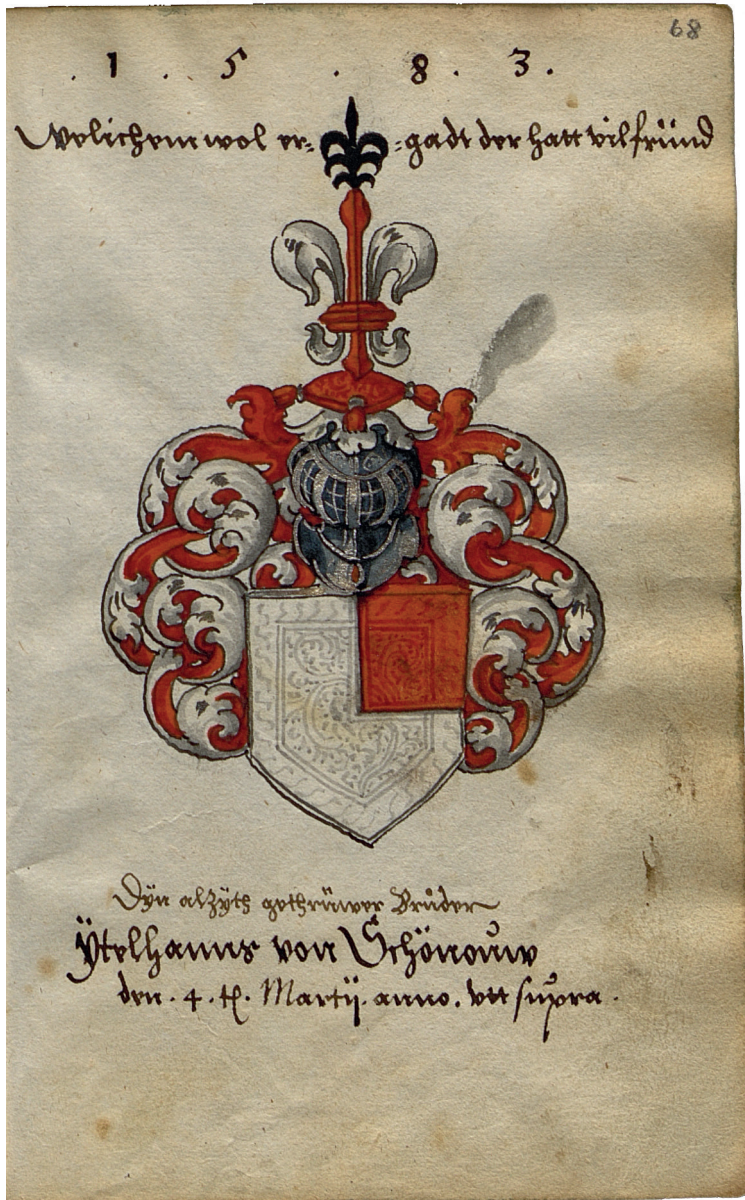 68
. 1 . 5 . 8 . 3 .
Welichem wol er= =gadt der hatt vil fründ
Dÿn alzÿth gethrüwer Brůder
Ÿtelhanns von Schönouw
den . 4 . tt. Martij . anno . vtt supra .